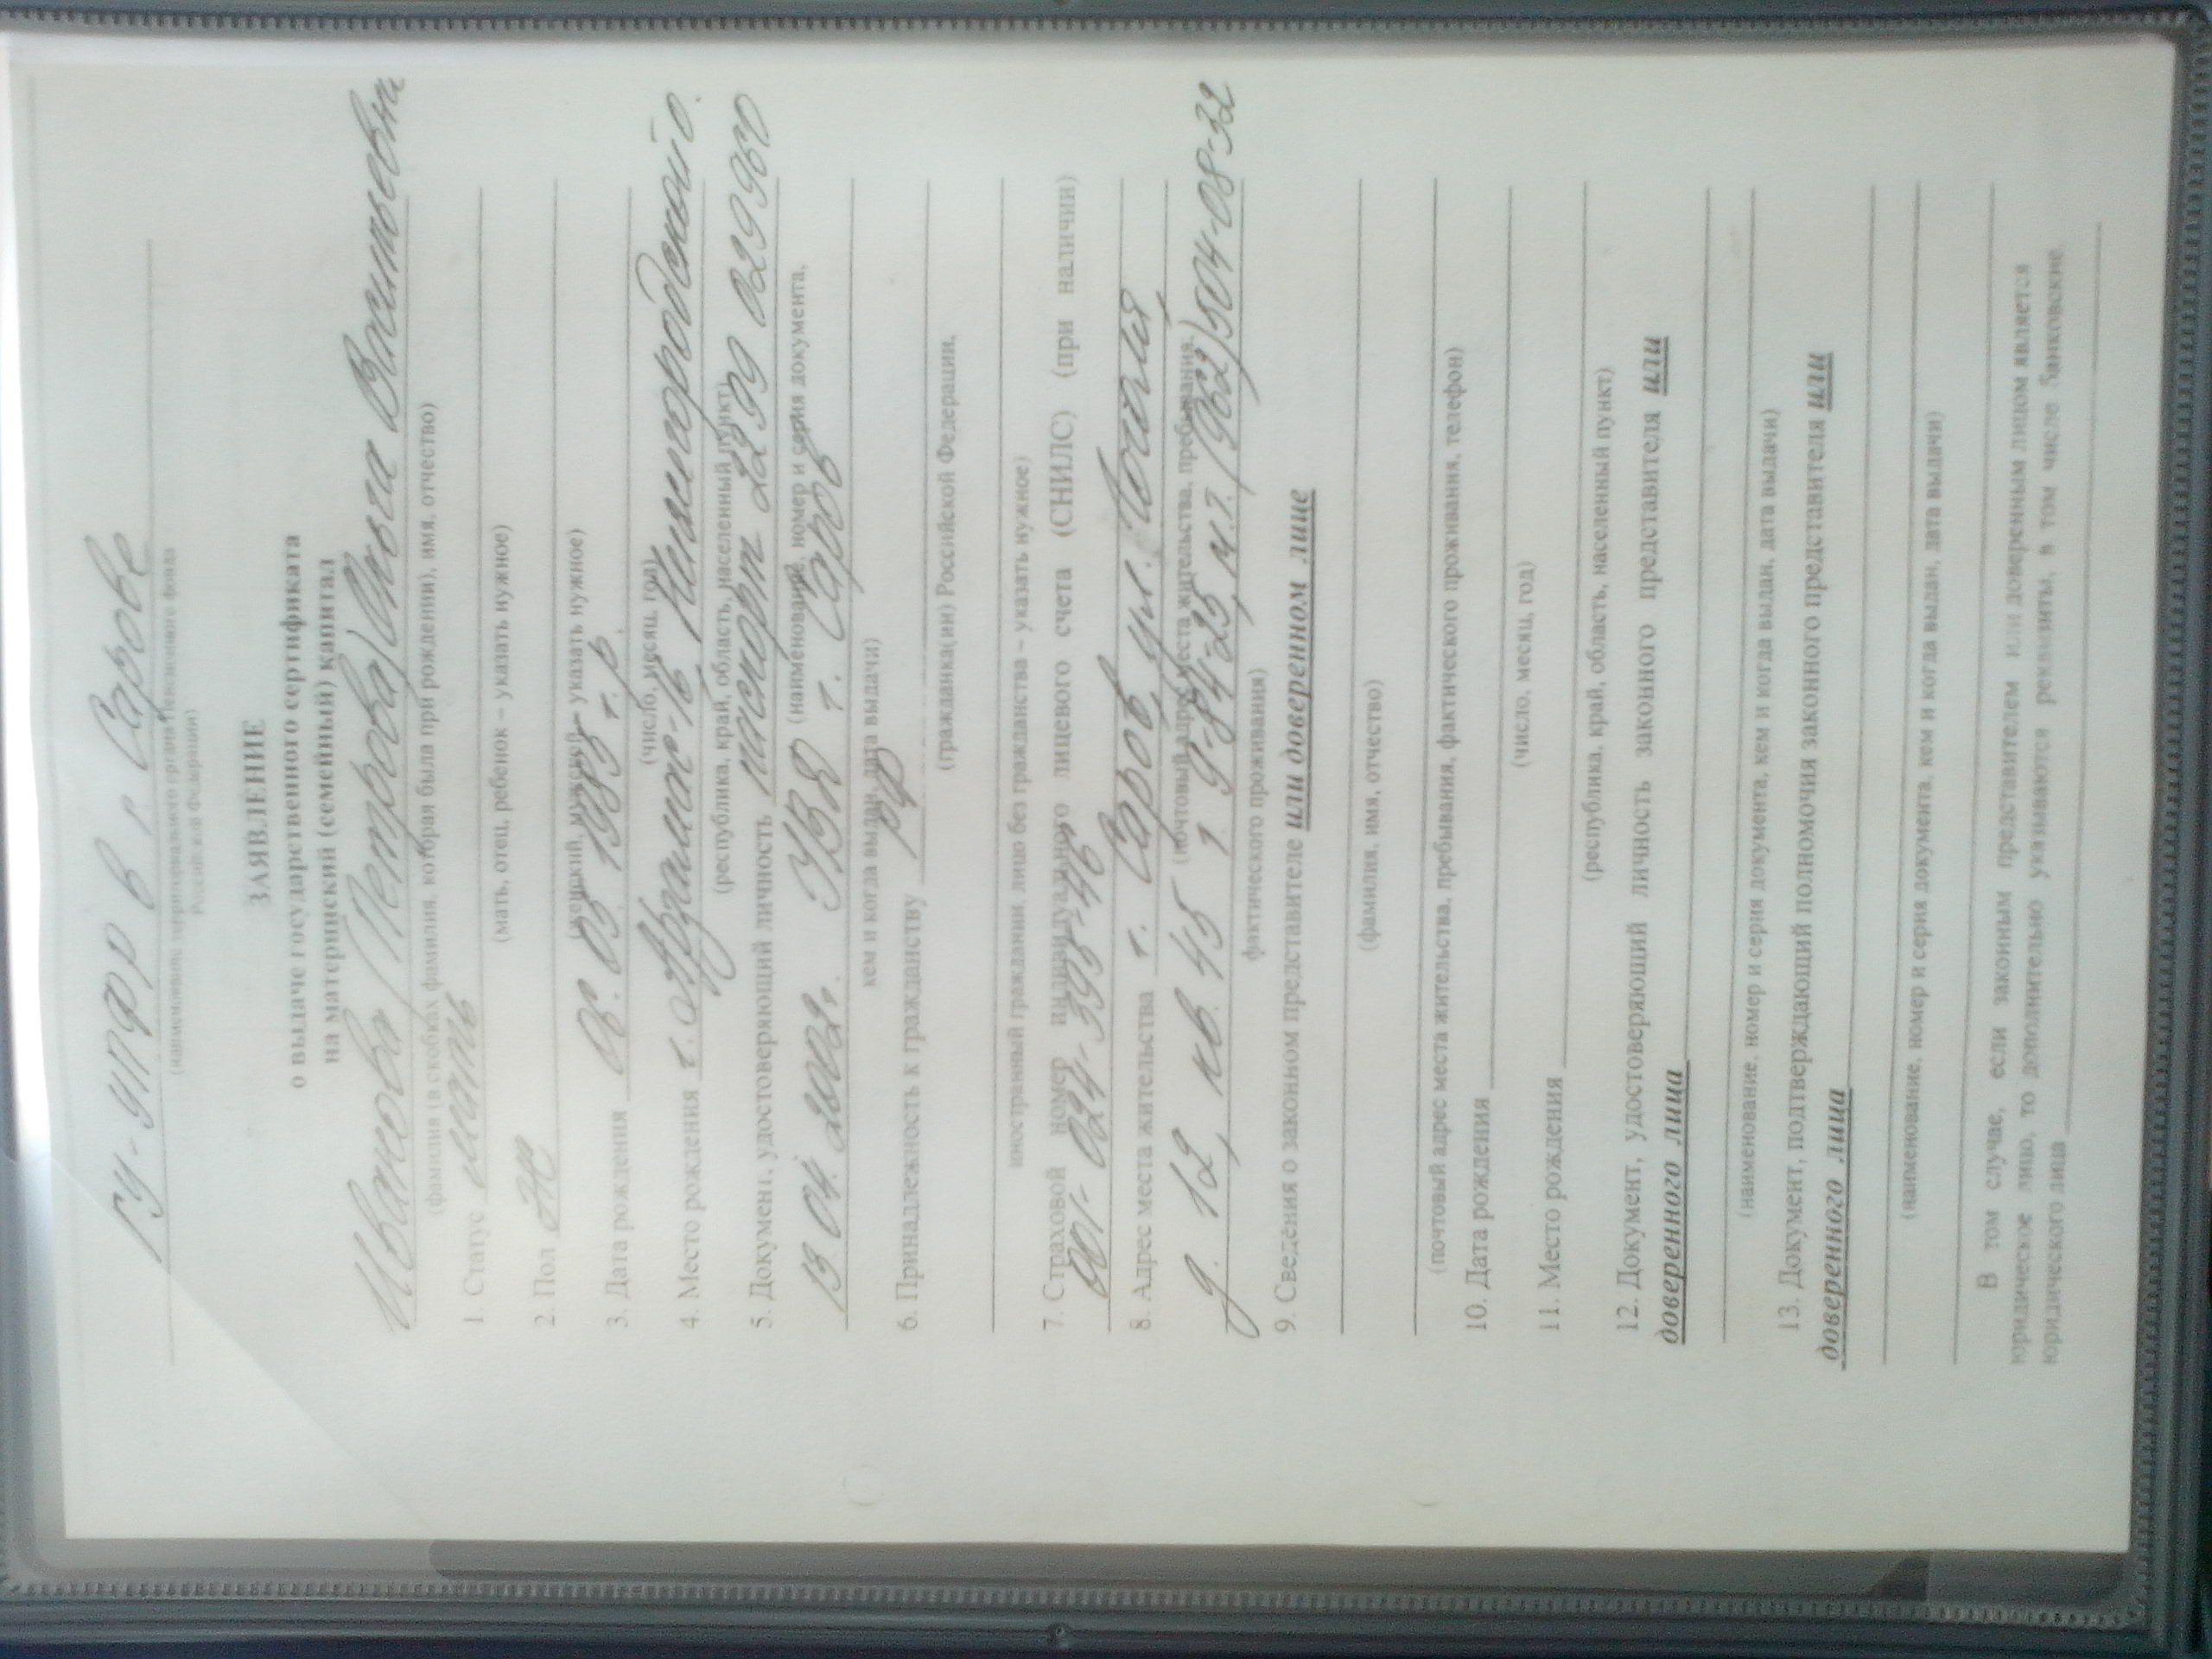 ГУ-УПФР в г. Сарове
(наименование территориального органа Пенсионного фонда
Российской Федерации)
ЗАЯВЛЕНИЕ
о выдаче государственного сертификата
на материнский (семейный) капитал
Иванова (Петрова) Ольга Васильевна
(фамилия (в скобках фамилия, которая была при рождении), имя, отчество)
1. Статус мать
(мать, отец, ребенок – указать нужное)
2. Пол Ж
(женский, мужской – указать нужное)
3. Дата рождения 05.05.1983 г.р.
(число, месяц, год)
4. Место рождения г. Арзамас-16, Нижегородской о.
(республика, край, область, населенный пункт)
5. Документ, удостоверяющий личность паспорт 2299 029960
(наименование, номер и серия документа,
13.04.2002г. УВД г. Саров
кем и когда выдан, дата выдачи)
6. Принадлежность к гражданству РФ
(гражданка(ин) Российской Федерации,
иностранный гражданин, лицо без гражданства – указать нужное)
7. Страховой номер индивидуального лицевого счета (СНИЛС) (при наличии)
001-024-393-46
8. Адрес места жительства г. Саров, ул.
(почтовый адрес места жительства, пребывания,
д. 12, кв. 45 т. 9-84-25, м.т. (962)504-08-32
фактического проживания)
9. Сведения о законном представителе или доверенном лице
(фамилия, имя, отчество)
(почтовый адрес места жительства, пребывания, фактического проживания, телефон)
10. Дата рождения
(число, месяц, год)
11. Место рождения
(республика, край, область, населенный пункт)
12. Документ, удостоверяющий личность законного представителя или
доверенного лица
(наименование, номер и серия документа, кем и когда выдан, дата выдачи)
13. Документ, подтверждающий полномочия законного представителя или
доверенного лица
(наименование, номер и серия документа, кем и когда выдан, дата выдачи)
В том случае, если законным представителем или доверенным лицом является
юридическое лицо, то дополнительно указываются реквизиты, в том числе банковские,
юридического лица